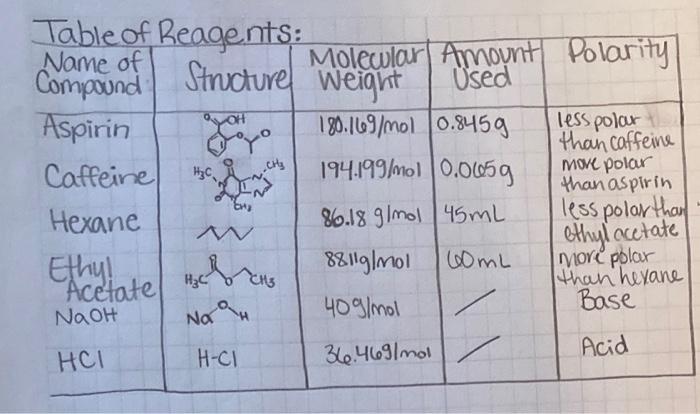 Table of Reagents:
Name of Compound Structure Molecular Weight Amount Used Polarity
Aspirin OH O O O 180.16g/mol 0.845g less polar than caffeine
Caffeine H3C O CH3 N N N N O CH3 194.19g/mol 0.065g more polar than aspirin
Hexane 86.18 g/mol 45mL less polar than ethyl acetate
Ethyl Acetate H3C O O CH3 88.11g/mol 60mL more polar than hexane
NaOH Na O H 40g/mol / Base
HCl H-Cl 36.46g/mol / Acid